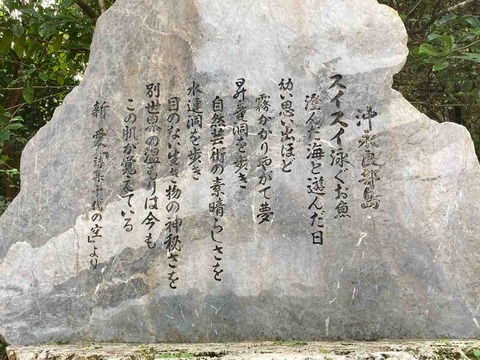 沖永良部島
スイスイ泳ぐお魚
澄んだ海と遊んだ日
幼い思い出ほど
霧がかりやがて夢
昇竜洞を歩き
自然芸術の素晴らしさを
水連洞を歩き
目のない生き物の神秘さを
別世界の温もりは今も
この肌が覚えている
新 愛「詩集十代の空」より